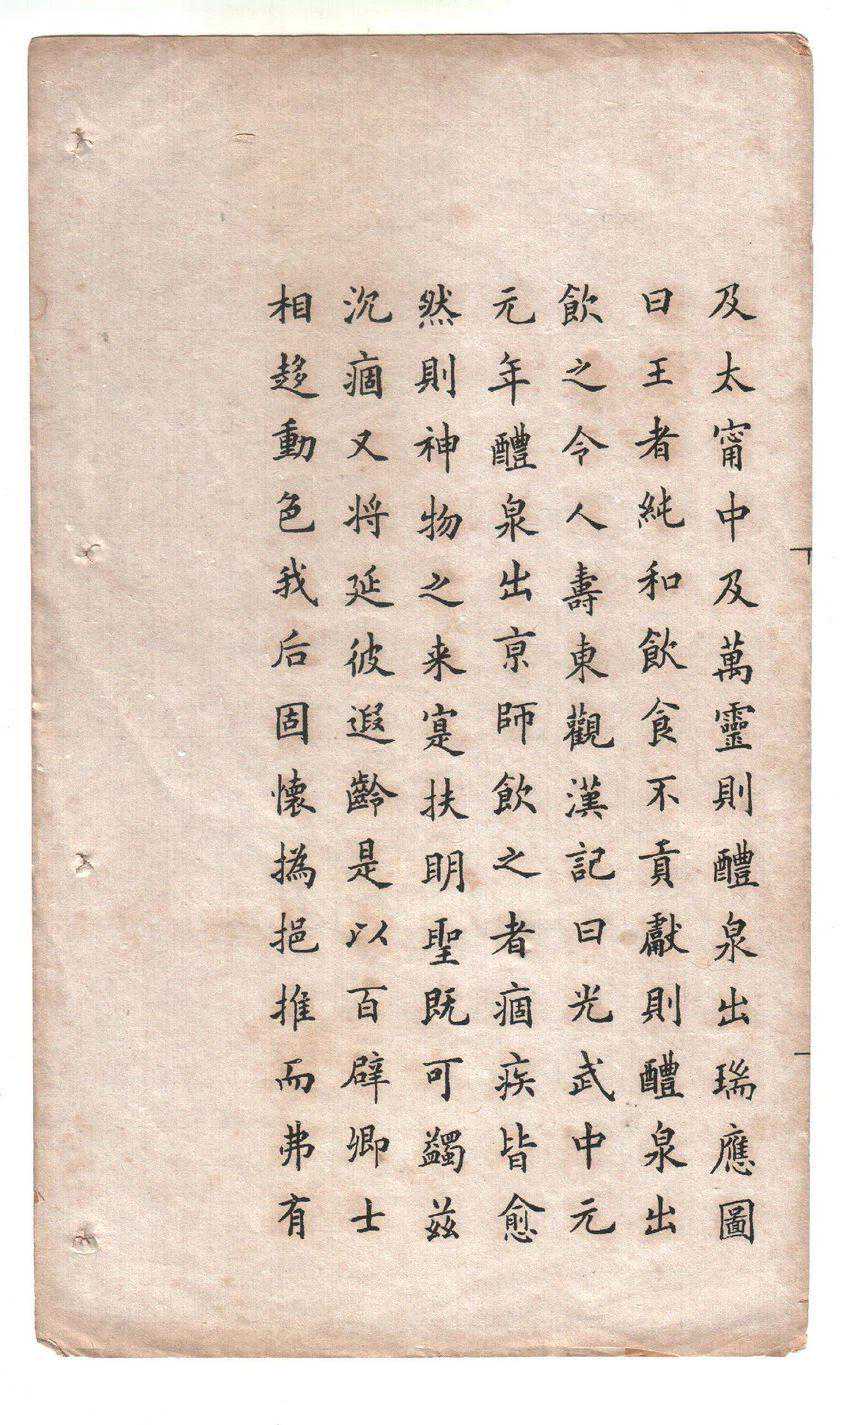 及太甯中及萬靈則醴泉出瑞應圖
曰王者純和飲食不貢獻則醴泉出
飲之令人壽東觀漢記曰光武中元
元年醴泉出京師飲之者痼疾皆愈
然則神物之来寔扶明聖既可蠲兹
沉痼又将延彼遐齡是以百辟卿士
相趍動色我后固懷撝挹推而弗有